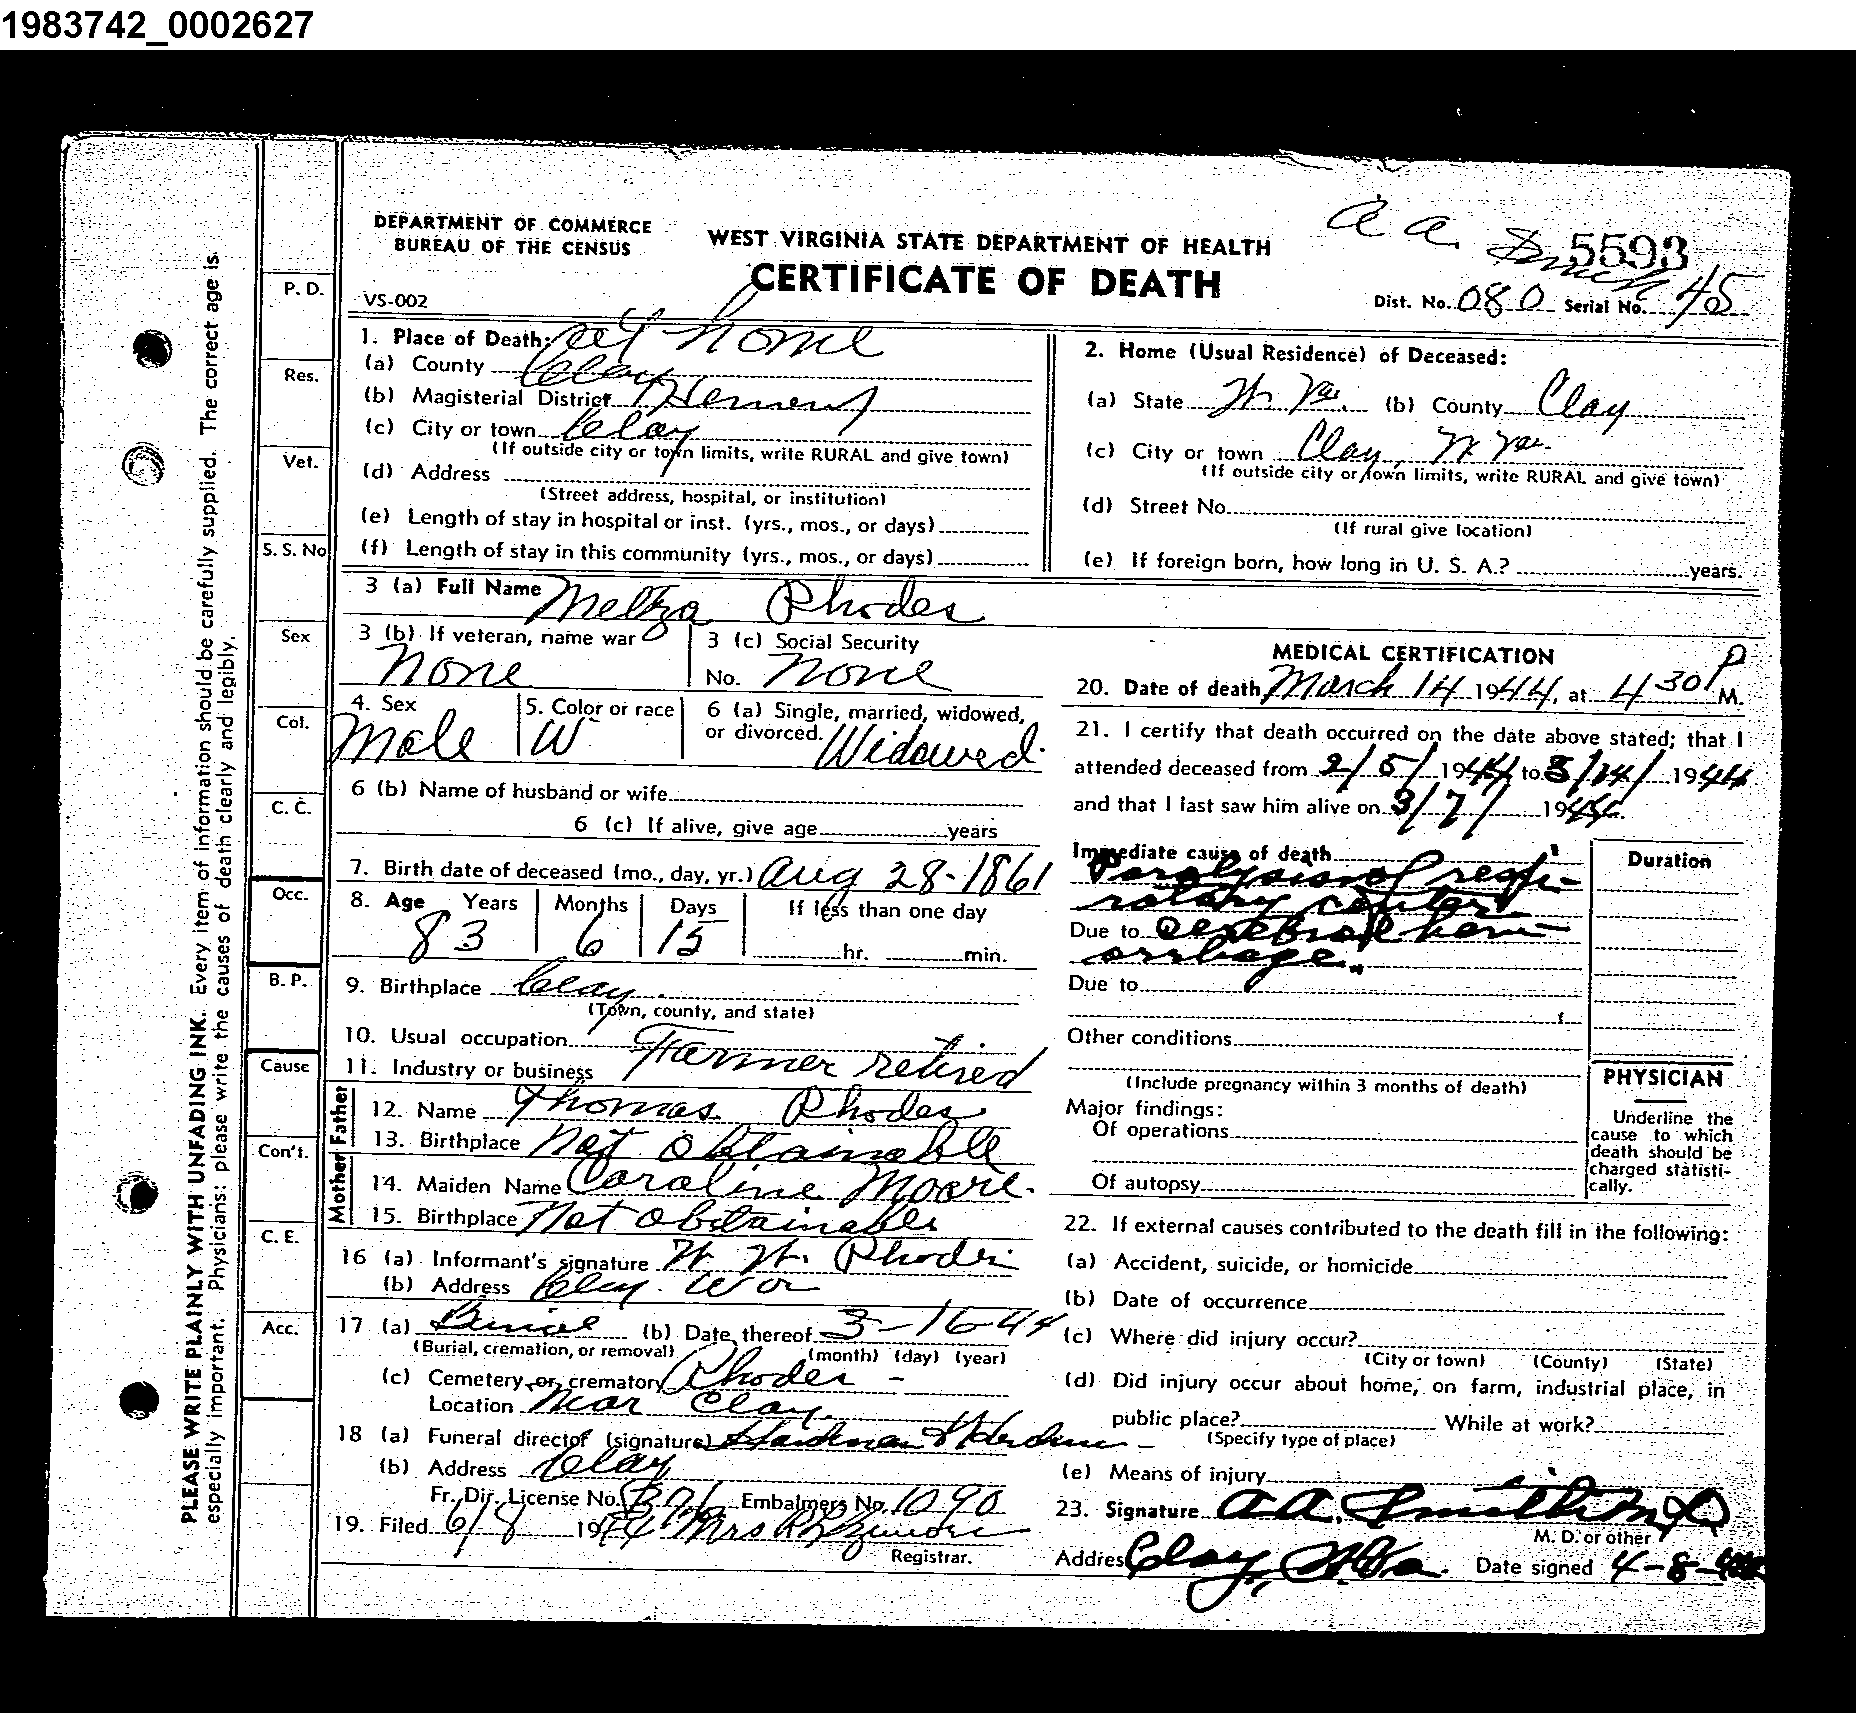 1983742_0002627
DEPARTMENT OF COMMERCE
BUREAU OF THE CENSUS
VS-002
WEST VIRGINIA STATE DEPARTMENT OF HEALTH
CERTIFICATE OF DEATH
a a. Smith
5593
Dist. No. 080 Serial No. 45
PLEASE WRITE PLAINLY WITH UNFADING INK. Every item of information should be carefully supplied. The correct age is
especially important. Physicians: please write the causes of death clearly and legibly.
P. D.
Res.
Vet.
S. S. No
Sex
Col.
C. C.
Occ.
B. P.
Cause
Con't.
C. E.
Acc.
1. Place of Death: at home
(a) County Clay
(b) Magisterial District Henery
(c) City or town Clay
(If outside city or town limits, write RURAL and give town)
(d) Address
(Street address, hospital, or institution)
(e) Length of stay in hospital or inst. (yrs., mos., or days)
(f) Length of stay in this community (yrs., mos., or days)
2. Home (Usual Residence) of Deceased:
(a) State W. Va. (b) County Clay
(c) City or town Clay, W Va.
(If outside city or town limits, write RURAL and give town)
(d) Street No.
(If rural give location)
(e) If foreign born, how long in U. S. A.? years.
3 (a) Full Name Rhodes
3 (b) If veteran, name war
None
3 (c) Social Security
No. None
4. Sex
Male
5. Color or race
W
6 (a) Single, married, widowed,
or divorced. Widowed
6 (b) Name of husband or wife
6 (c) If alive, give age years
7. Birth date of deceased (mo., day, yr.) Aug 28-1861
8. Age Years Months Days If less than one day
83 6 15 hr. min.
9. Birthplace Clay.
(Town, county, and state)
10. Usual occupation
11. Industry or business Farmer retired
Father
12. Name Thomas Rhodes
13. Birthplace Not obtainable
Mother
14. Maiden Name Caroline Moore.
15. Birthplace Not obtainable
16 (a) Informant's signature W. W. Rhodes
(b) Address Clay. W Va
17 (a) Burial (b) Date thereof 3-16-44
(Burial, cremation, or removal) (month) (day) (year)
(c) Cemetery or crematory Rhodes -
Location Near Clay
18 (a) Funeral director (signature)
(b) Address Clay
Fr. Dir. License No. Embalmers No. 1090
19. Filed 6/8 1944 Mrs
Registrar.
MEDICAL CERTIFICATION
20. Date of death, March 14 1944, at 4 30 P M.
21. I certify that death occurred on the date above stated; that I
attended deceased from 2/5/ 1944 to 3/14/ 1944
and that I last saw him alive on 3/7/ 1944.
Immediate cause of death
Paralysis of respi-
ratory center
Due to Cerebral hem-
orrhage.
Due to
Other conditions
(Include pregnancy within 3 months of death)
Major findings:
Of operations
Of autopsy
Duration
PHYSICIAN
Underline the
cause to which
death should be
charged statisti-
cally.
22. If external causes contributed to the death fill in the following:
(a) Accident, suicide, or homicide
(b) Date of occurrence
(c) Where did injury occur?
(City or town) (County) (State)
(d) Did injury occur about home, on farm, industrial place, in
public place? While at work?
(Specify type of place)
(e) Means of injury
23. Signature A A. Smith M. D.
M. D. or other
Address Clay, W. Va. Date signed 4-8-44